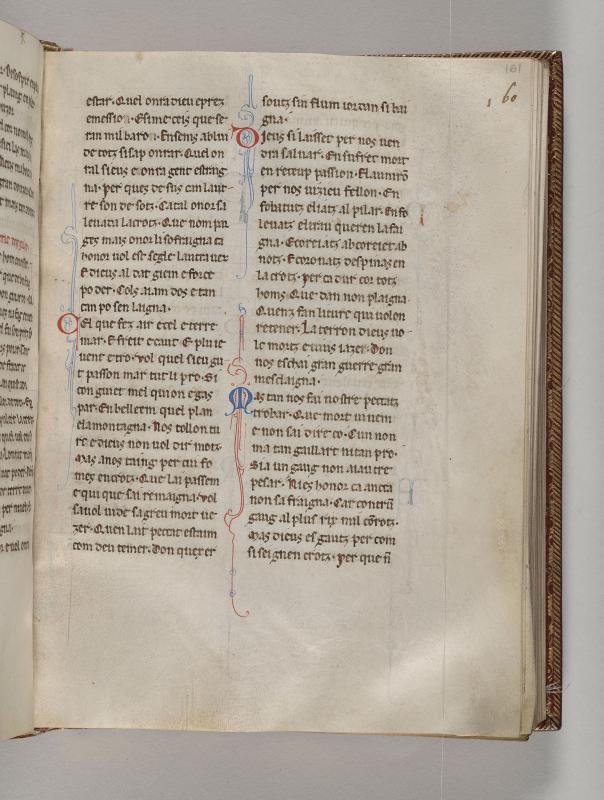 161
1 60
estar. Quel onra dieu e prez
e messio n. E sime ceis que se
ran mil baro n. Ensems ab lui
de totz si sap onrar. Quel on
ral si eus e onra gent estrag
na. per ques de sus can laut
re son de sotz. Catal onor sa
leuada la crotz. Que nom pa
getz mais onor li sofraigna ca
honor uol est segle lautra uer
E dieus al dat gien e force
poder. Cols aiam dos e tan
can po sen laigna.
Cel que fez air e cel e terre
mar. E freit e caut. E plui e
uent e tro. vol quel sieu gu
it passon mar tut li pro. Si
con guiet mel quion e gas
par. En belleem quel plan
e la montagna. Nos tollon tu
re e dieus non uol dir motz.
Mas a nos taing per cui fo
mes en crotz. Que lai passem
e qui que sai remaigna. vol
sa uol uide sa greu mort ue
zer. Quen lait peccat estaim
com deu temer. Don quez er
soutz sin flum iordan si bai
gna.
Dieus si laisset per nos uen
dre saluar. E n sufret mort
en receup passion. El aunirō
per nos iuzieu fellon. E n
fo batutz e liatz al pilar. E n fo
leuatz el trau quer en la fai
gna. E coreiatz ab coreiet ab
notz. E coronatz despinas en
la crotz. per ca dur cor totz
homs. Que dan non plaigna.
Quenz fan liture qui uolon
retener. La terr on dieus uo
le mortz e uius iazer. Don
nos eschai gran guerre gran
mesclaigna.
Mas tan nos fai nostre peccatz
trobar. Que mort uiuem
e non sai dire co. Cun non
ma tan gaillart ni tan pro.
Si a un gaug non aiautre
pesar. Nies honor ca ancta
non sa fraigna. Car contr ū
gaug al plus rix mil cōrotz.
Mas dieus es gautz per com
si seignen crotz. per que ñ